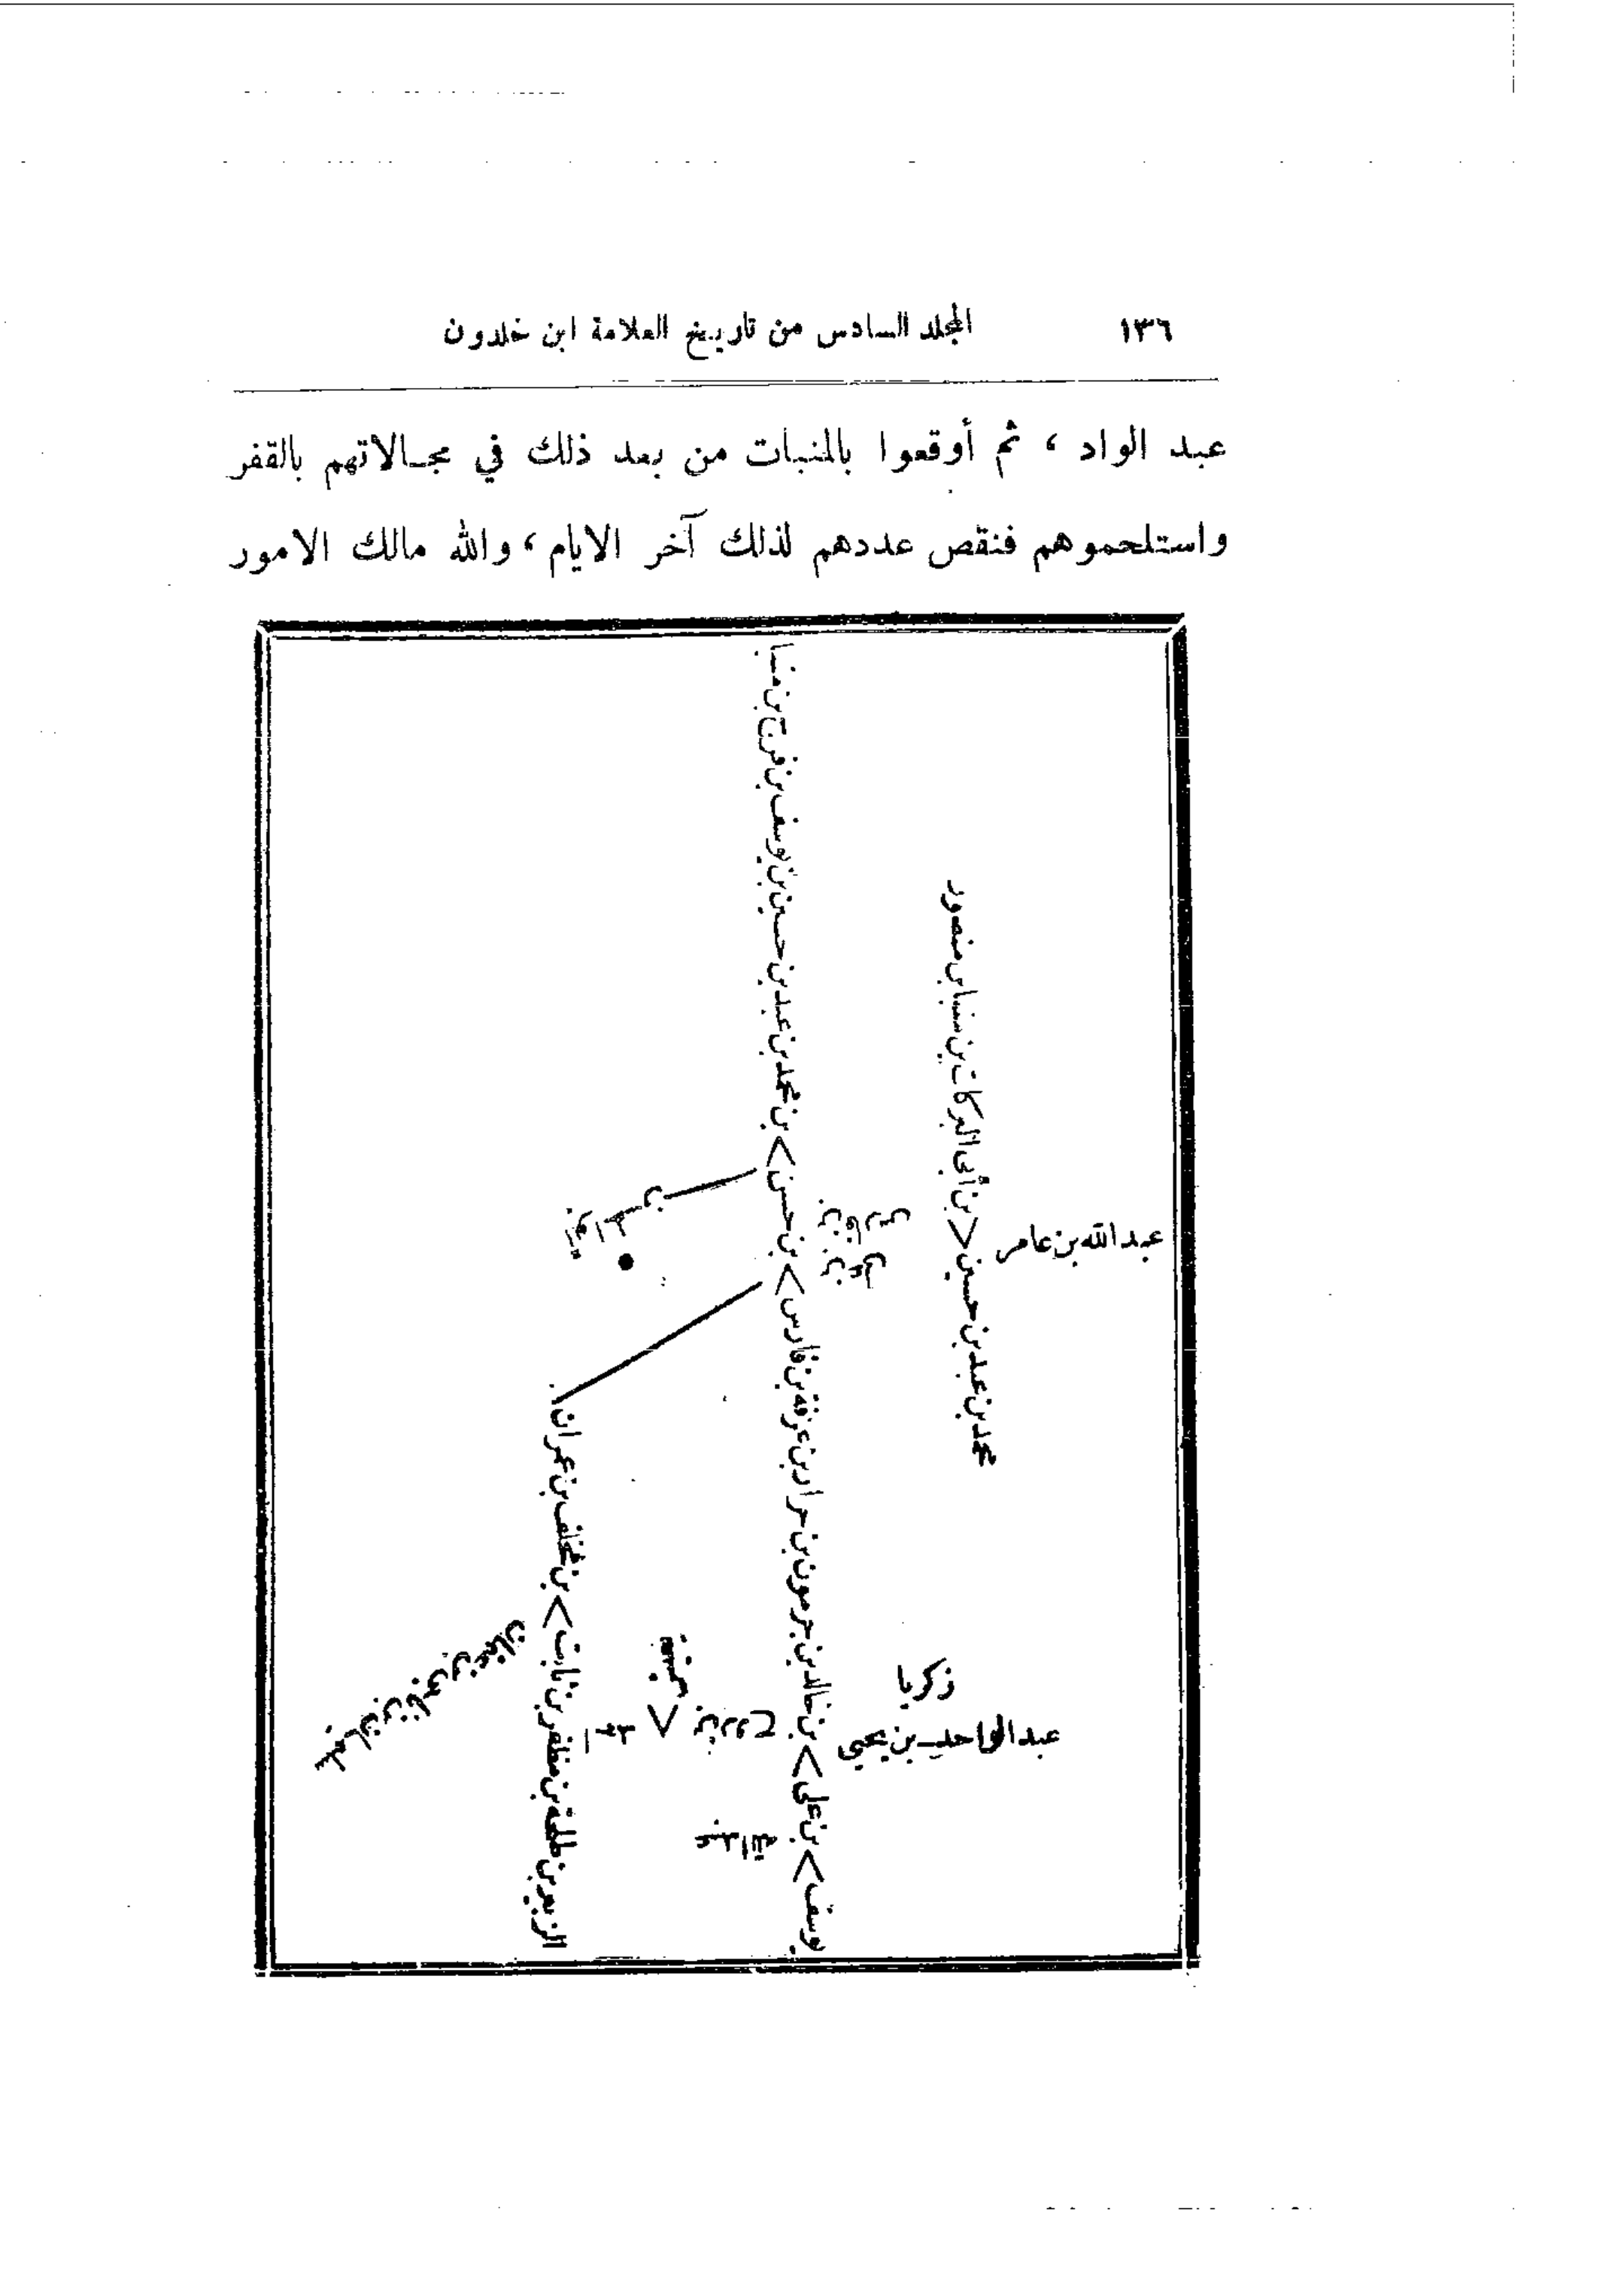 ١٣٦ المجلد السادس من تاريخ العلامة ابن خلدون
عبد الواد ، ثم أوقعوا بالمنبات من بعد ذلك في مجالاتهم بالقفر
واستلحموهم فنقص عددهم لذلك آخر الايام ، والله مالك الامور
عبد الله بن عامر
محمد بن عبد بن حسين > بن أبي البركات بن منبا بن منصور
زكريا
عبد الواحد بن يحيى
يوسف > بن علي > بن خالد بن جرمون بن جرار بن عرفة بن فارس > بن حسن > بن محمد بن عبد بن حسين بن يوسف بن فرج بن منبا
الزبير بن طلحة بن مظفر بن ثابت > بن مخلف بن عمران